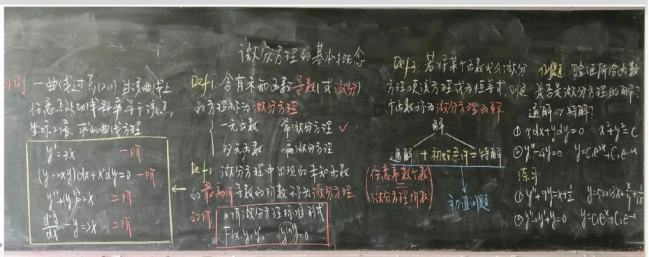 微分方程的基本概念
引例 一曲线过点(1,2) 且该曲线上
任意点处切线斜率等于该点
坐标2倍, 求此曲线方程
y'=2x 一阶
一阶
二阶
二阶
Def1. 含有未知函数导数(或微分)
的方程称为微分方程
一元函数 常微分方程 ✓
多元函数 偏微分方程
微分方程中出现的未知函数
的最高阶导数的阶数称为微分方程
的阶
n阶微分方程标准形式
F(x,y,y',…,y⁽ⁿ⁾)=0
Def. 若将某个函数代入微分
方程使该方程成为恒等式 则这
个函数称为微分方程的解
解
通解 + 初始条件 = 特解
(任意常数个数
微分方程阶数)
初值问题
例题 验证所给函数
是否是微分方程的解?
通解or特解?
① xdx+ydy=0 x²+y²=C
② y''-4y'=0
练习
①
②